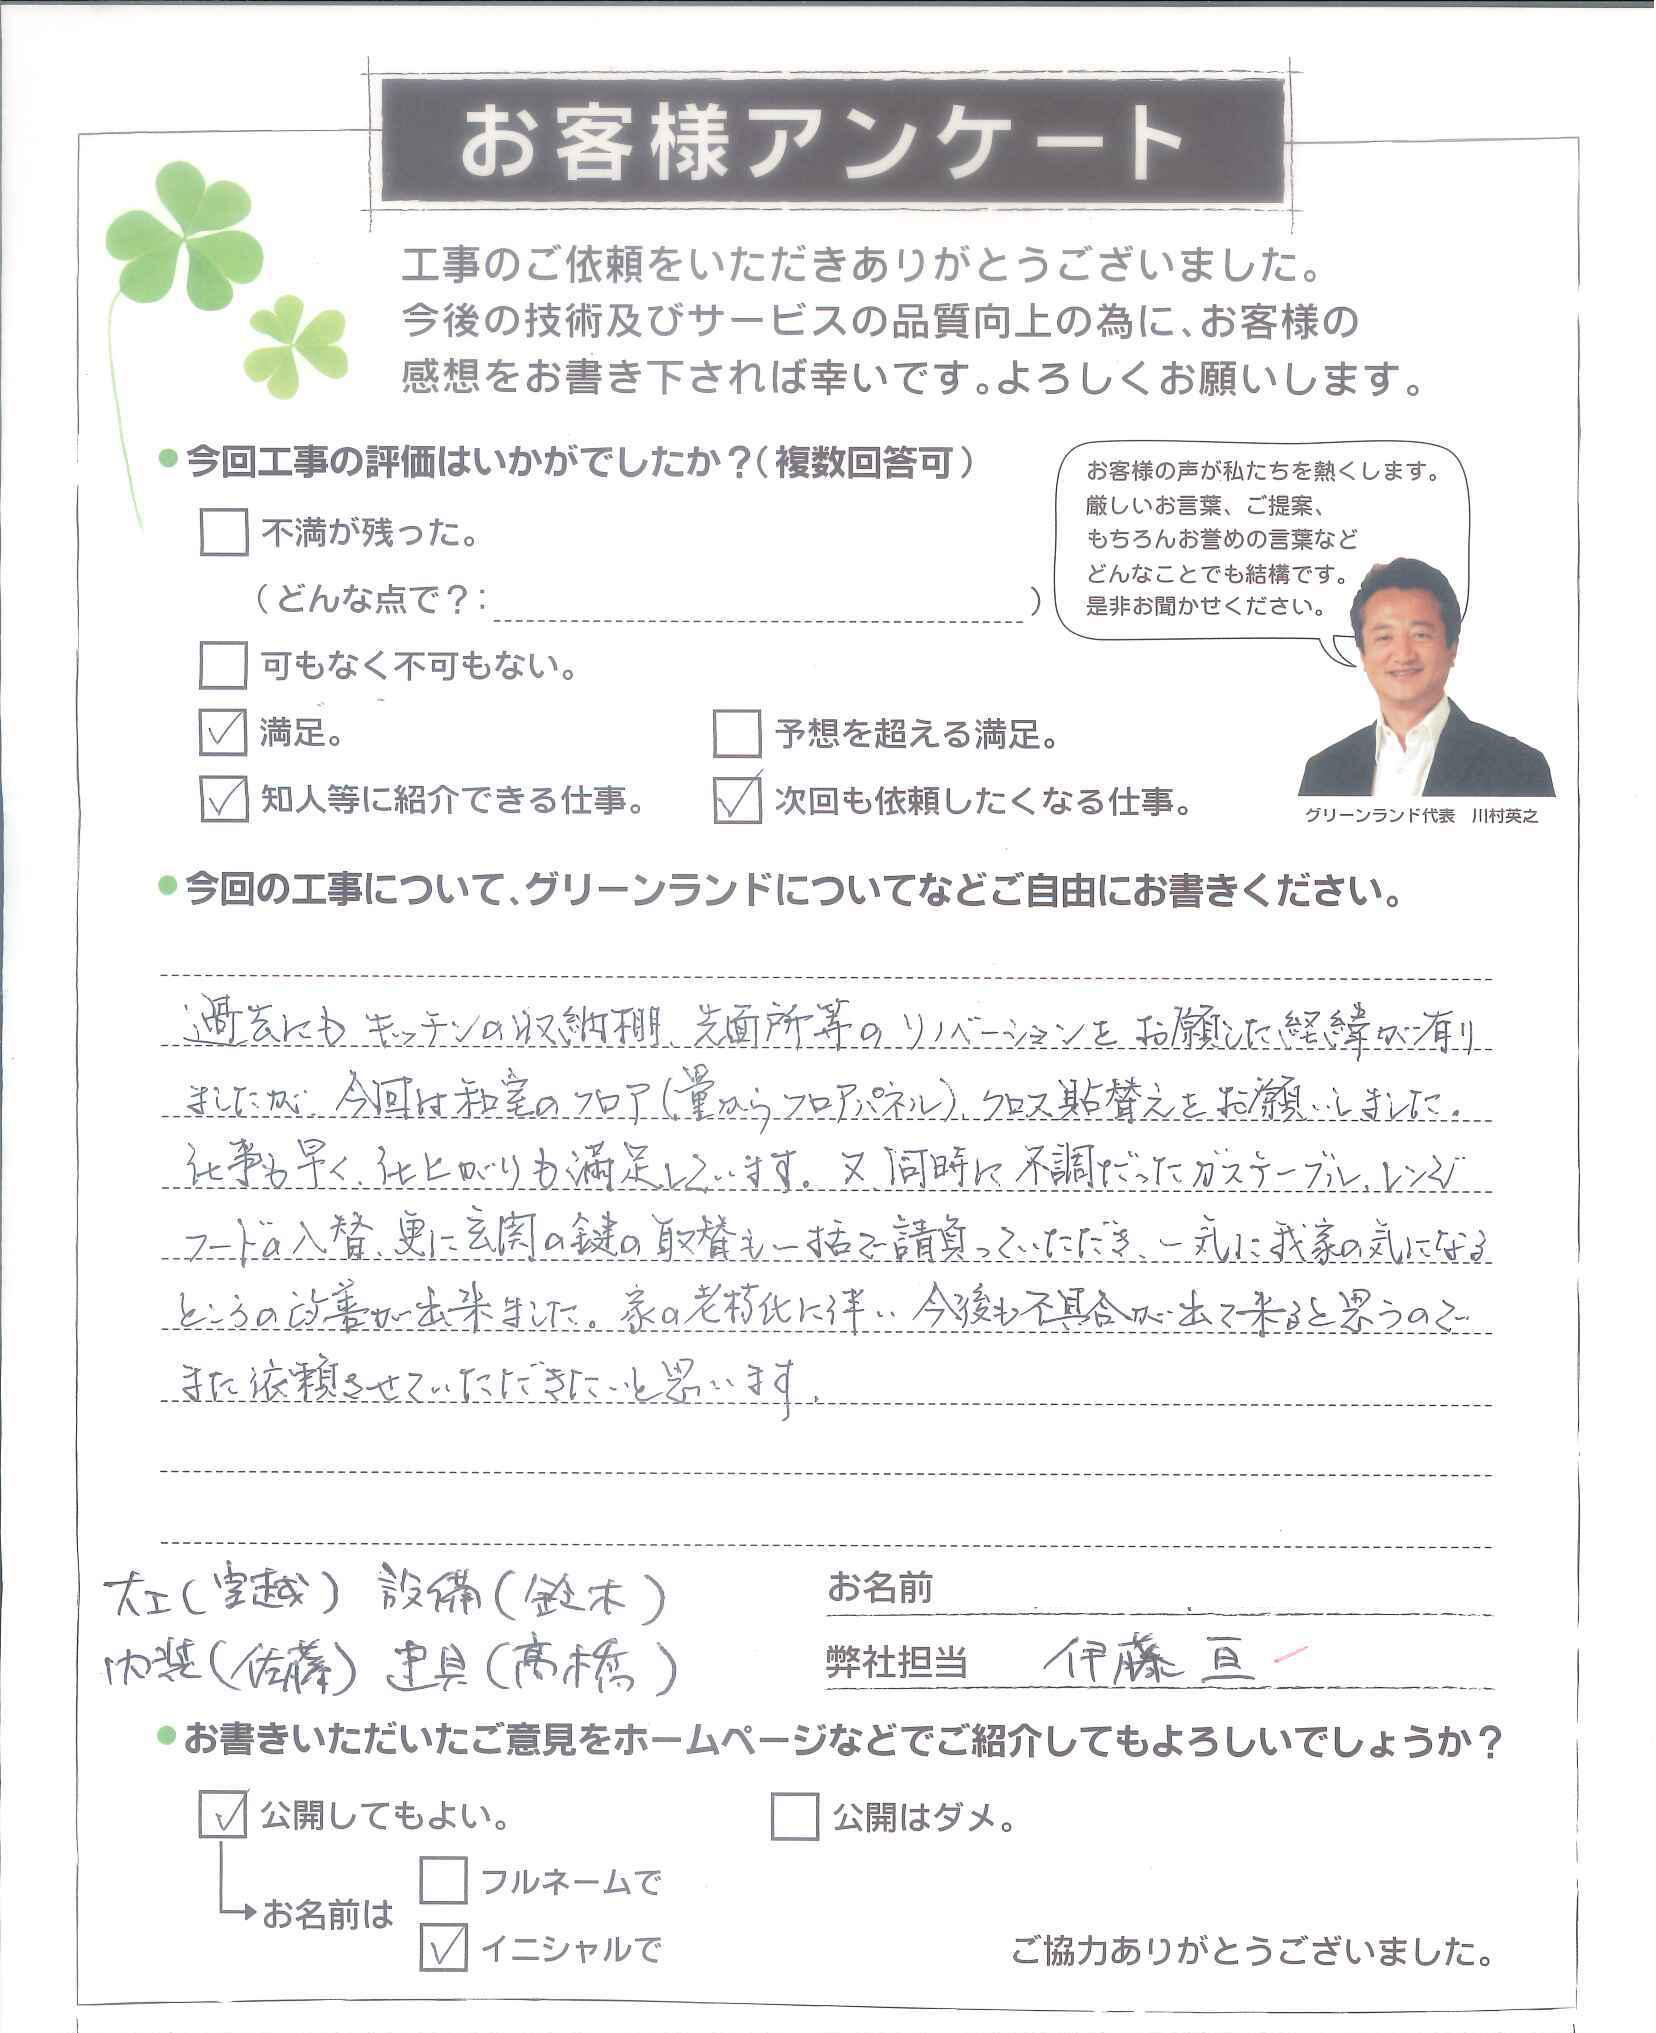 お客様アンケート
工事のご依頼をいただきありがとうございました。
今後の技術及びサービスの品質向上の為に、お客様の
感想をお書き下されば幸いです。よろしくお願いします。
今回工事の評価はいかがでしたか？（複数回答可）
不満が残った。
（どんな点で？：　　　）
可もなく不可もない。
満足。
予想を超える満足。
知人等に紹介できる仕事。
次回も依頼したくなる仕事。
お客様の声が私たちを熱くします。
厳しいお言葉、ご提案、
もちろんお誉めの言葉など
どんなことでも結構です。
是非お聞かせください。
グリーンランド代表　川村英之
今回の工事について、グリーンランドについてなどご自由にお書きください。
過去にもキッチンの収納棚、洗面所等のリノベーションをお願した経緯が有り
ましたが、今回は和室のフロア(畳からフロアパネル)、クロス貼替えをお願いしました。
仕事も早く、仕上がりも満足しています。又、同時に不調だったガステーブル、レンジ
フードの入替、更に玄関の鍵の取替も一括で請負っていただき、一気に我家の気になる
ところの改善が出来ました。家の老朽化に伴い今後も不具合が出て来ると思うので
また依頼させていただきたいと思います。
大工(宮越)　設備(鈴木)
内装(佐藤)　建具(高橋)
お名前
弊社担当　伊藤 亘
お書きいただいたご意見をホームページなどでご紹介してもよろしいでしょうか？
公開してもよい。
公開はダメ。
お名前は
フルネームで
イニシャルで
ご協力ありがとうございました。